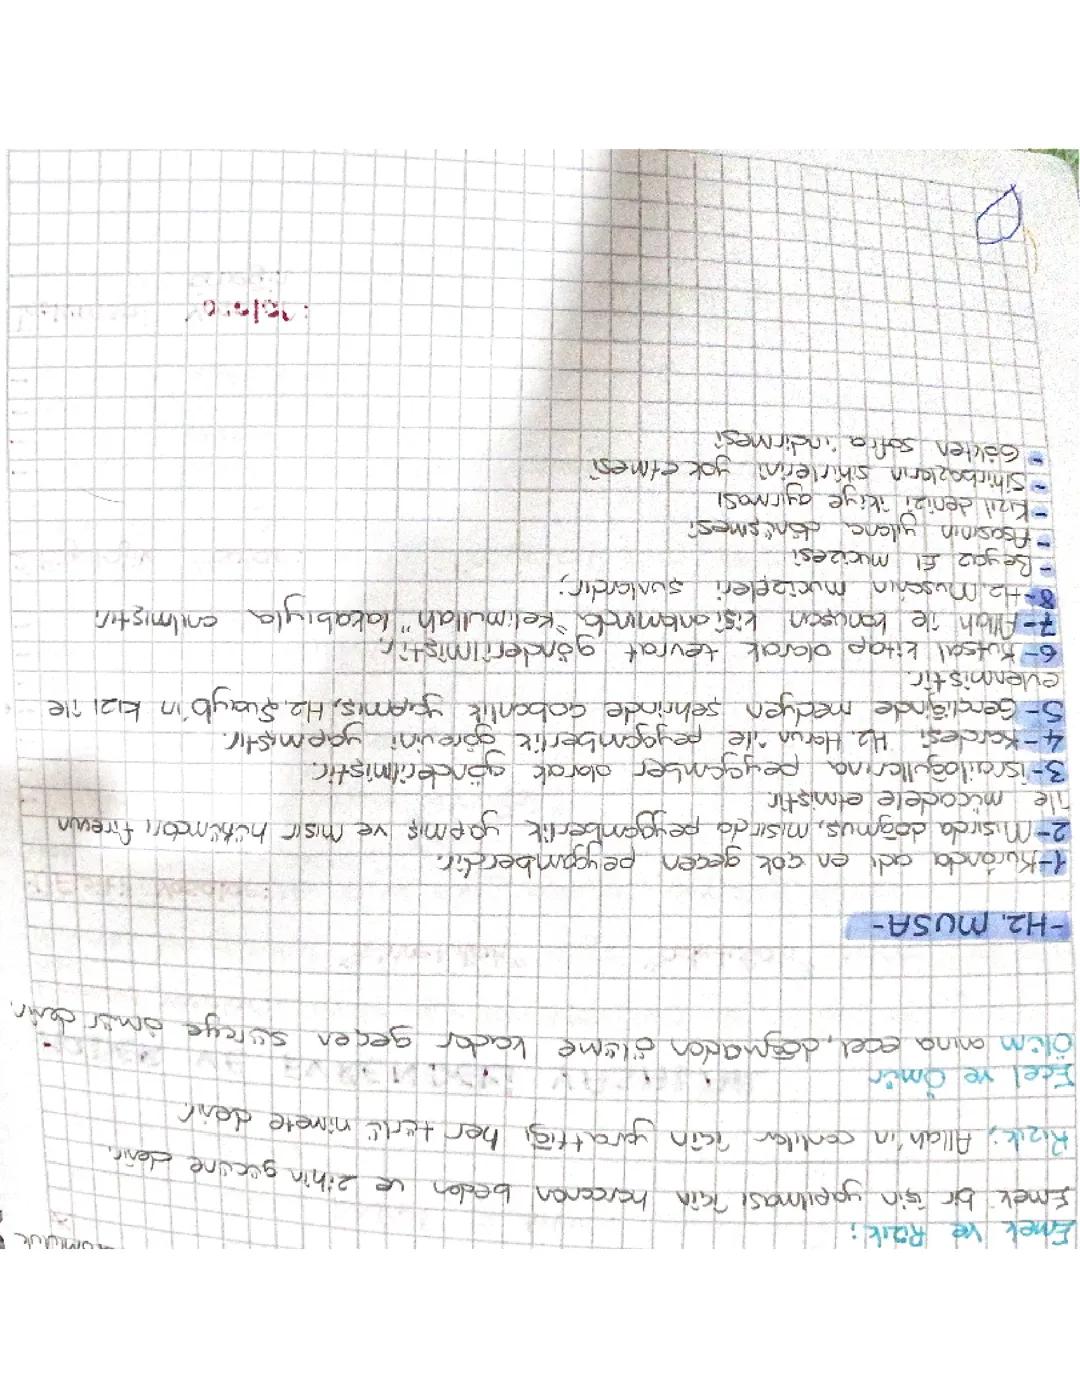 Emek ve Rızık;
Emek bir işin yapılması için harcanan beden ve zihin gücüne denir.
Rızık; Allah'ın canlılar için yarattığı her türlü nimete denir
Ecel ve Ömür
Ölüm anına ecel, doğmadan ölüme kadar geçen süreye ömür denir.
-HZ. MUSA-
1-Kuranda adı en çok geçen peygamberdir.
2-Mısırda doğmuş, mısırda peygamberlik yapmış ve mısır hükümdarı firavun
ile mücadele etmiştir
3-israiloğullarına peygamber olarak gönderilmiştir.
4-Kardeşi Hz. Harun ile peygamberlik görevini yapmıştır.
5-Gençliğinde medyen şehrinde çobanlık yapmış, Hz. Şuayb'ın kızı ile
evlenmiştir.
6-Kutsal kitap olarak tevrat gönderilmiştir.
7-Allah ile konuşan kişi anlamında "kelimullah" lakabıyla anılmıştır.
8-Hz. Musanın mucizeleri şunlardır;
- Beyaz El mucizesi
- Asasının yılana dönüşmesi
- Kızıl denizi ikiye ayırması
- Sihirbazların sihirlerini yok etmesi
- Gökten sofra indirmesi